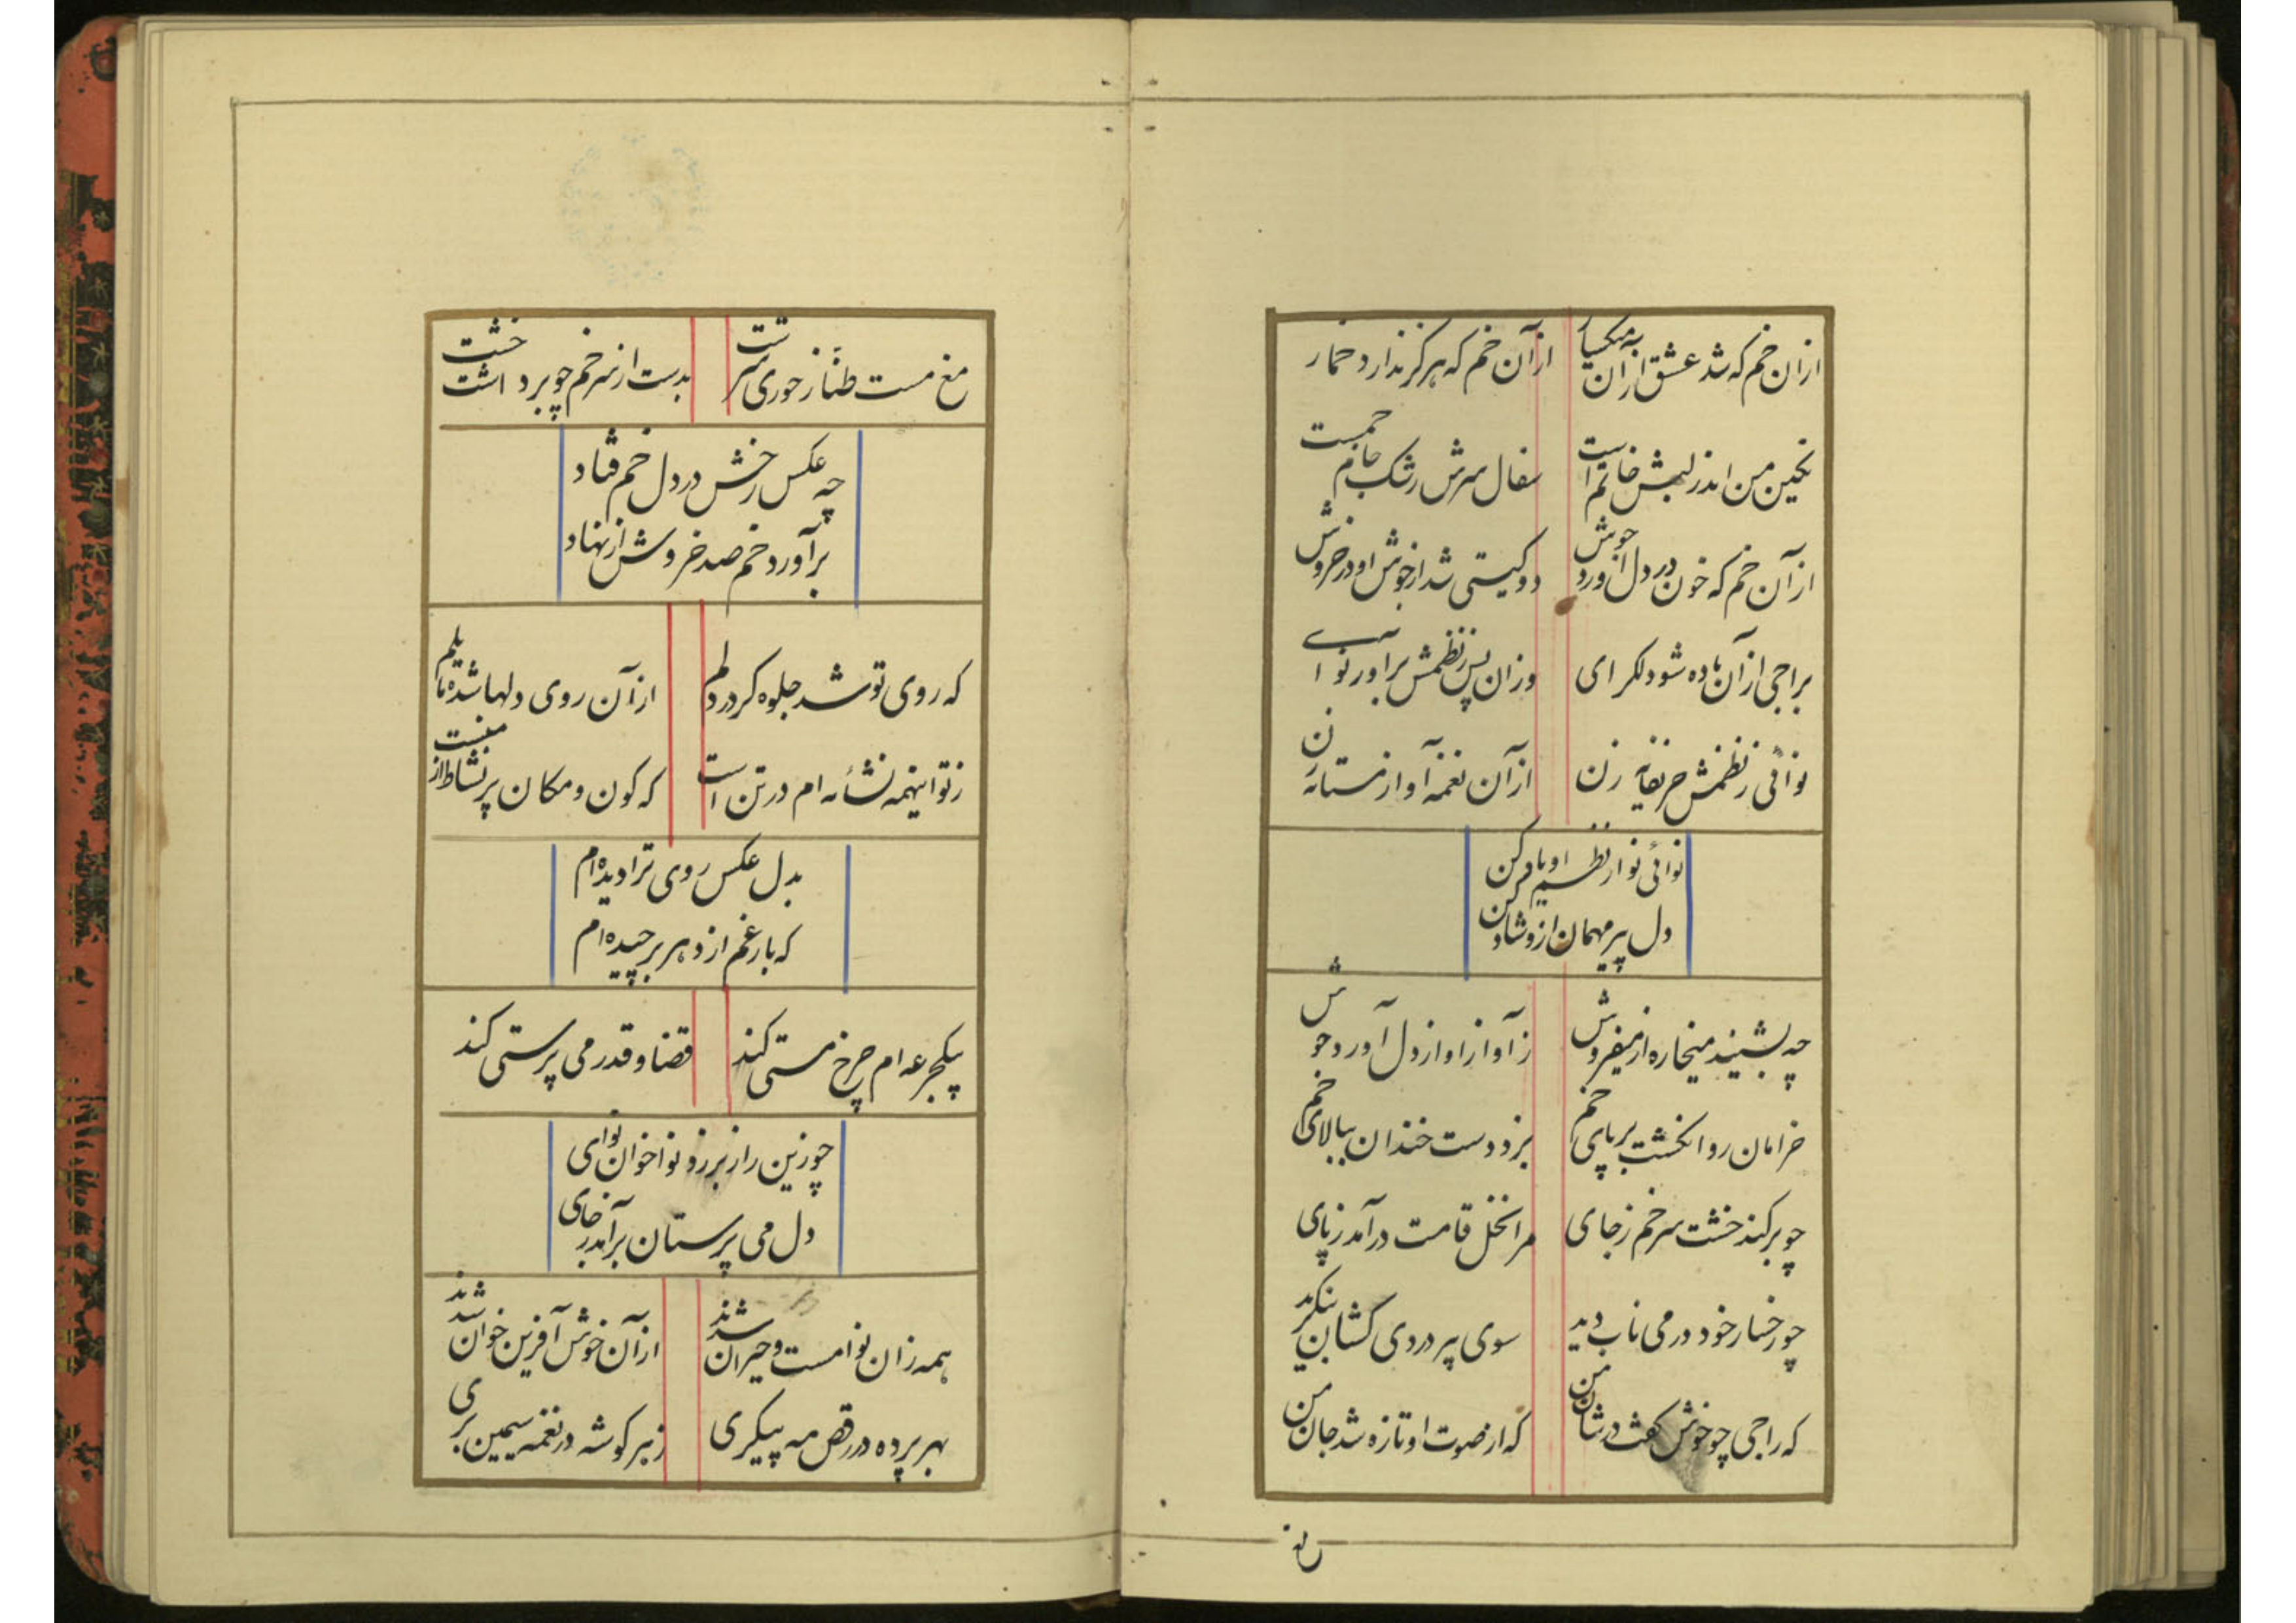 ازان خم که شد عشق ازان میکسار ازآن خم که هرکز ندارد خمار
نکین من اندر لبش خاتم است سفال سرش رشک جام جمست
ازآن خم که خون در دل اورد جوش دو کیتی شد از جوش او در خروش
براجی ازآن باده شو دلکرای وزان پس زنظمش براور نوای
نوائی زنظمش حریفانه زن ازآن نغمه آواز مستانه زن
نوائی نو از نظم او یاد کن
دل پیر میهمان ازو شاد کن
چه بشنید میخاره از میفروش زآواز او از دل آورد جوش
خرامان روان کشت بر پای خم بزد دست خندان ببالای خم
چو برکند خشت سر خم زجای مرا نخل قامت درآمد زپای
چو رخسار خود در می ناب دید سوی پیر دردی کشان بنکرید
که راجی چو خوش کفت در شان من که از صوت او تازه شد جان من
مغ مست طناز حوری سرشت بدست از سر خم چو برداشت خشت
چه عکس رخش در دل خم فتاد
برآورد خم صد خروش از نهاد
که روی تو شد جلوه کر در دلم ازآن روی دلها شده مایلم
زتو اینهمه نشأه ام در تن است که کون و مکان پر نشاط از منست
بدل عکس روی ترا دیده ام
که بار غم از دهر برچیده ام
بیکجرعه ام چرخ مستی کند قضا و قدر می پرستی کند
چو زین راز بر زد نواخوان نوای
دل می پرستان برآمد زجای
همه زان نوا مست و حیران شدند ازآن خوش آفرین خوان شدند
بهر پرده در رقص مه پیکری زهر کوشه در نغمه سیمین بری